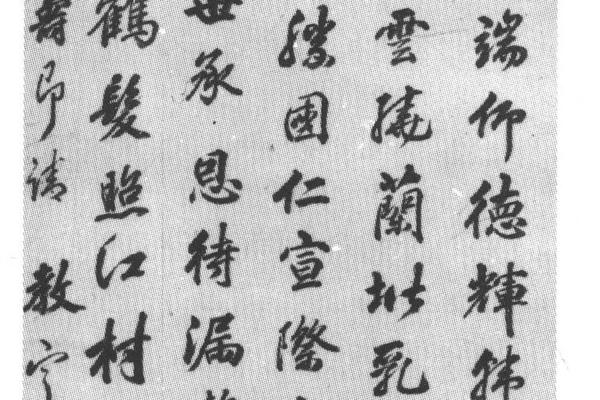 端仰德輝
雲繞蘭址乳
勝國仁宣際
世承恩待漏
鶴髮照江村
壽即請 教定